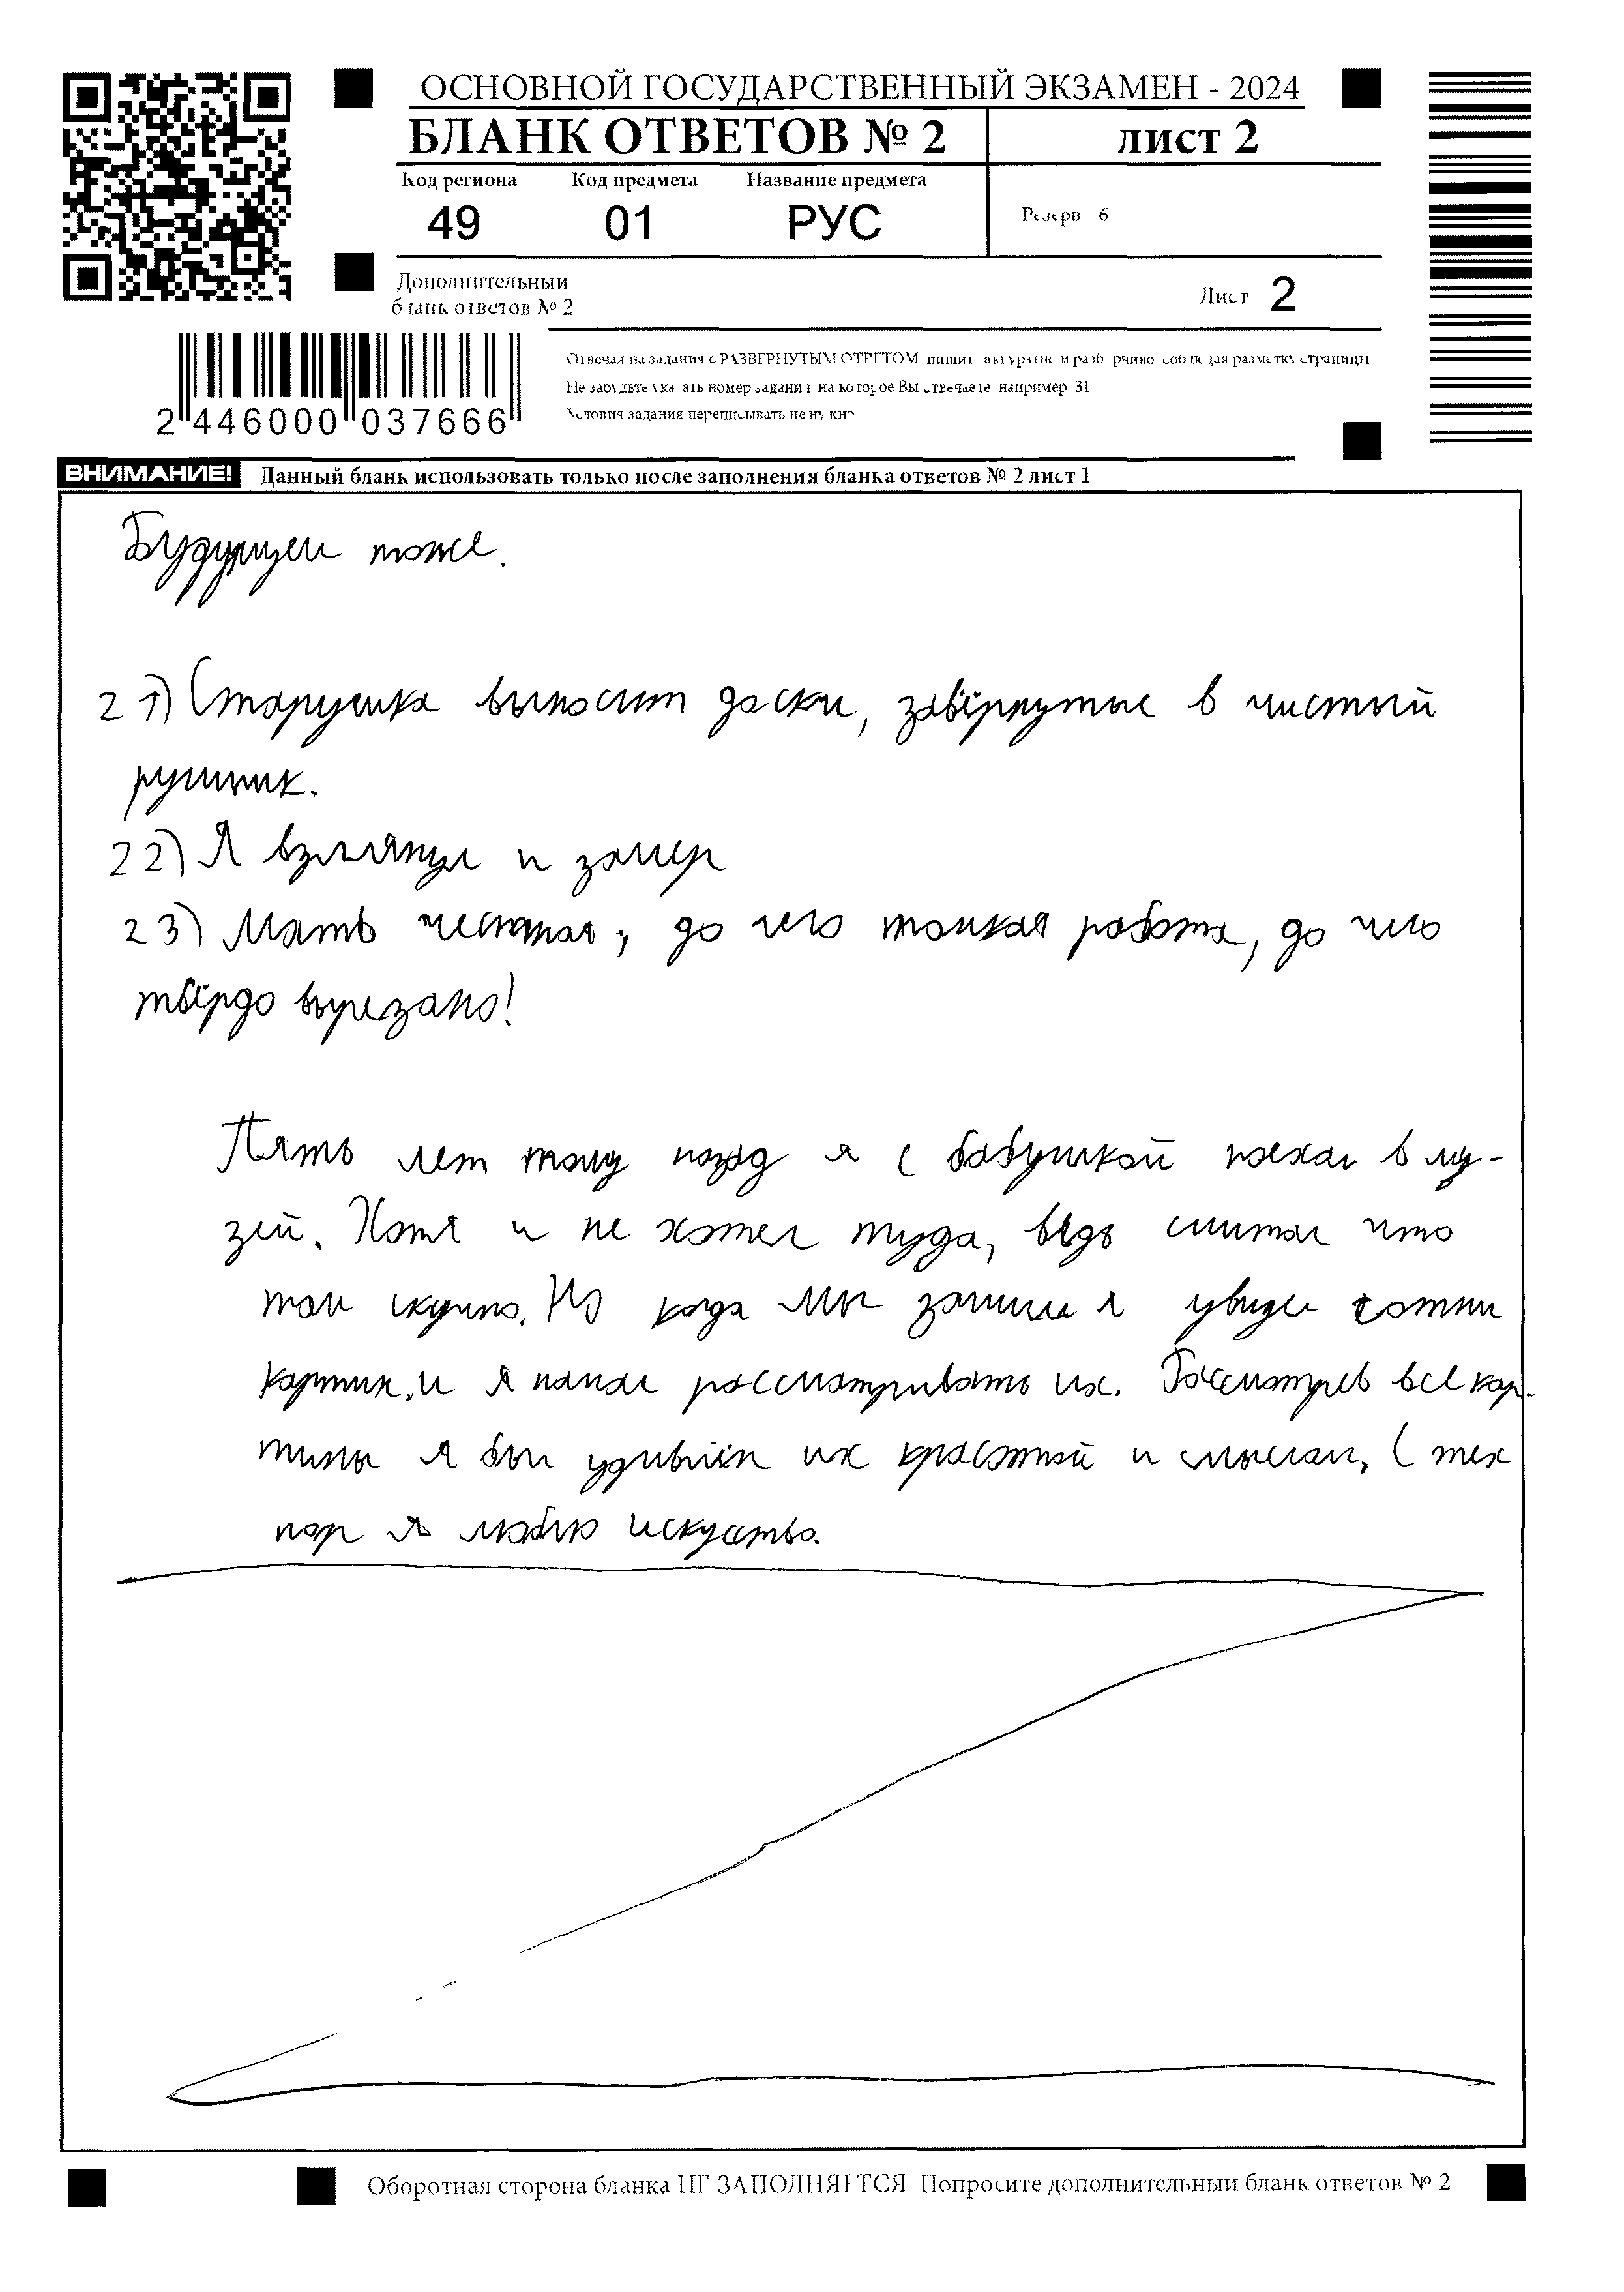 ОСНОВНОЙ ГОСУДАРСТВЕННЫЙ ЭКЗАМЕН - 2024
БЛАНК ОТВЕТОВ № 2
лист 2
Код региона Код предмета Название предмета
49 01 РУС
Резерв 6
Дополнительный
бланк ответов № 2
Лист 2
Отвечая на задания с РАЗВЕРНУТЫМ ОТВЕТОМ пишите аккуратно и разборчиво соблюдая разметку страницы
Не забудьте указать номер задания на которое Вы отвечаете например 31
Условия задания переписывать не нужно
2 446000 037666
ВНИМАНИЕ! Данный бланк использовать только после заполнения бланка ответов № 2 лист 1
Будущем тоже.
21) Старушка выносит доски, завёрнутые в чистый
рушник.
22) Я взглянул и замер
23) Мать честная, до чего тонкая работа, до чего
твёрдо вырезано!
Пять лет тому назад я с бабушкой поехал в му-
зей. Хотя и не хотел туда, ведь считал что
там скучно. Но когда мы зашли я увидел сотни
картин, и я начал рассматривать их. Рассмотрев все кар-
тины я был удивлён их красотой и смыслом. С тех
пор я люблю искуство.
Оборотная сторона бланка НЕ ЗАПОЛНЯЕТСЯ Попросите дополнительный бланк ответов № 2